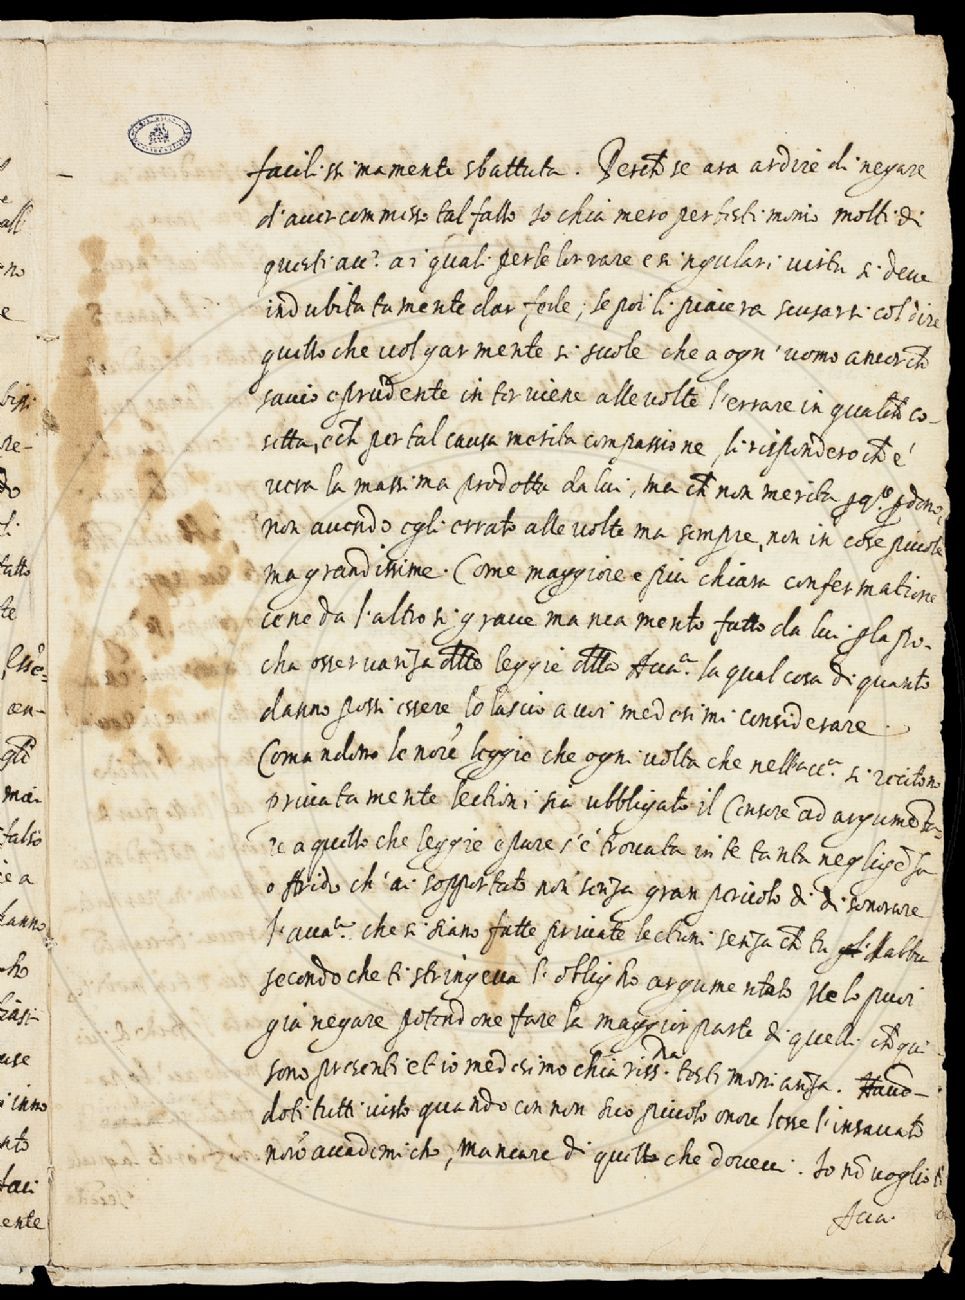 facilissimamente sbattuta. Perche se ara ardire di negare
d'aver commisso tal fallo Io chiamero per testimonio molti di
questi acc.i ai quali per le lor rare e singulari virtu si deve
indubitatamente dar fede; se poi li piacera scusarsi col dire
quello che volgarmente si suole che a ogn'uomo ancorch
savio e prudente interviene alle volte l'errare in qualch co-
setta, e ch per tal causa merita compassione, li rispondero ch e'
vera la massima prodotta da lui, ma ch non merita perdono
non avendo egli errato alle volte ma sempre, non in cose piccole
ma grandissime. Come maggiore e piu chiara confermatione
ce ne da l'altro si grave mancamento fatto da lui p la po-
cha osservanza delle leggie della Acca. la qual cosa di quanto
danno possi essere lo lascio a voi medesimi considerare.
Comandono le nore leggie che ogni volta che nell'acc.a si recitono
privatamente lectioni sia ubbligato il Censore ad argumenta-
re a quello che leggie e pure s'è trovata in te tanta negligeza
o Arido ch' ai sopportato non senza gran pericolo di disonorare
l'acca. che si siano fatte private lectioni senza ch tu abbia
secondo che ti stringeva l'obbligho argumentato Ne lo puoi
gia negare potendone fare la maggior parte di quelli ch qui
sono presenti et io medesimo chiariss.ma testimonianza. Havedo-
doti tutti visto quando con non suo piccolo onore lesse l'insaccato
noro accademicho, mancare di quello che dovevi. Io no voglio
Acca.